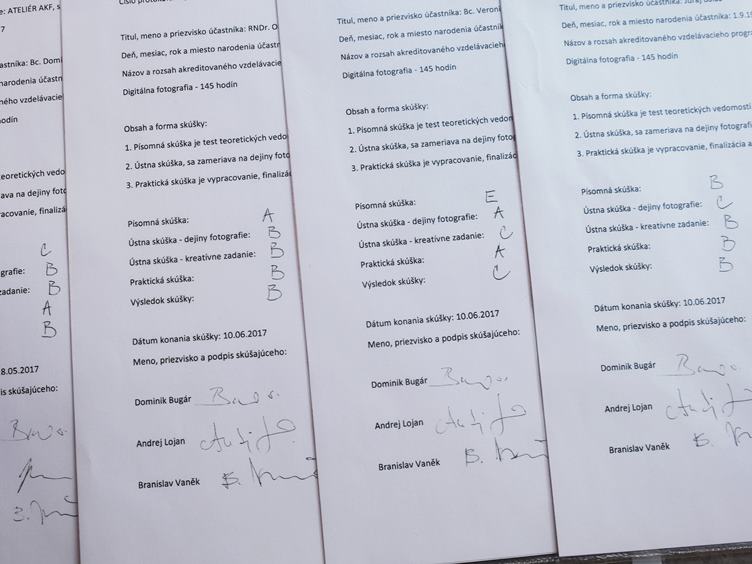 e: ATELIÉR AKF, s
7
astníka: Bc. Domi
narodenia účastn
ného vzdelávacie
odín
eoretických vedo
ava na dejiny foto
racovanie, finalizá
C
grafie: B
zadanie: B
A
B
8.05.2017
is skúšajúceho:
Titul, meno a priezvisko účastníka: RNDr. O
Deň, mesiac, rok a miesto narodenia účastn
Názov a rozsah akreditovaného vzdelávacie
Digitálna fotografia - 145 hodín
Obsah a forma skúšky:
1. Písomná skúška je test teoretických vedo
2. Ústna skúška, sa zameriava na dejiny foto
3. Praktická skúška je vypracovanie, finalizá
Písomná skúška: A
Ústna skúška - dejiny fotografie: B
Ústna skúška - kreatívne zadanie: B
Praktická skúška: B
Výsledok skúšky: B
Dátum konania skúšky: 10.06.2017
Meno, priezvisko a podpis skúšajúceho:
Dominik Bugár
Andrej Lojan
Branislav Vaněk
Titul, meno a priezvisko účastníka: Bc. Veroni
Deň, mesiac, rok a miesto narodenia účastník
Názov a rozsah akreditovaného vzdelávacieh
Digitálna fotografia - 145 hodín
Obsah a forma skúšky:
1. Písomná skúška je test teoretických vedom
2. Ústna skúška, sa zameriava na dejiny fotog
3. Praktická skúška je vypracovanie, finalizác
Písomná skúška: E
Ústna skúška - dejiny fotografie: A
Ústna skúška - kreatívne zadanie: C
Praktická skúška: A
Výsledok skúšky: C
Dátum konania skúšky: 10.06.2017
Meno, priezvisko a podpis skúšajúceho:
Dominik Bugár
Andrej Lojan
Branislav Vaněk
Titul, meno a priezvisko účastníka:
Deň, mesiac, rok a miesto narodenia účastníka: 1.9.19
Názov a rozsah akreditovaného vzdelávacieho progra
Digitálna fotografia - 145 hodín
Obsah a forma skúšky:
1. Písomná skúška je test teoretických vedomostí
2. Ústna skúška, sa zameriava na dejiny fotografi
3. Praktická skúška je vypracovanie, finalizácia a
Písomná skúška: B
Ústna skúška - dejiny fotografie: C
Ústna skúška - kreatívne zadanie: B
Praktická skúška: B
Výsledok skúšky: B
Dátum konania skúšky: 10.06.2017
Meno, priezvisko a podpis skúšajúceho:
Dominik Bugár
Andrej Lojan
Branislav Vaněk